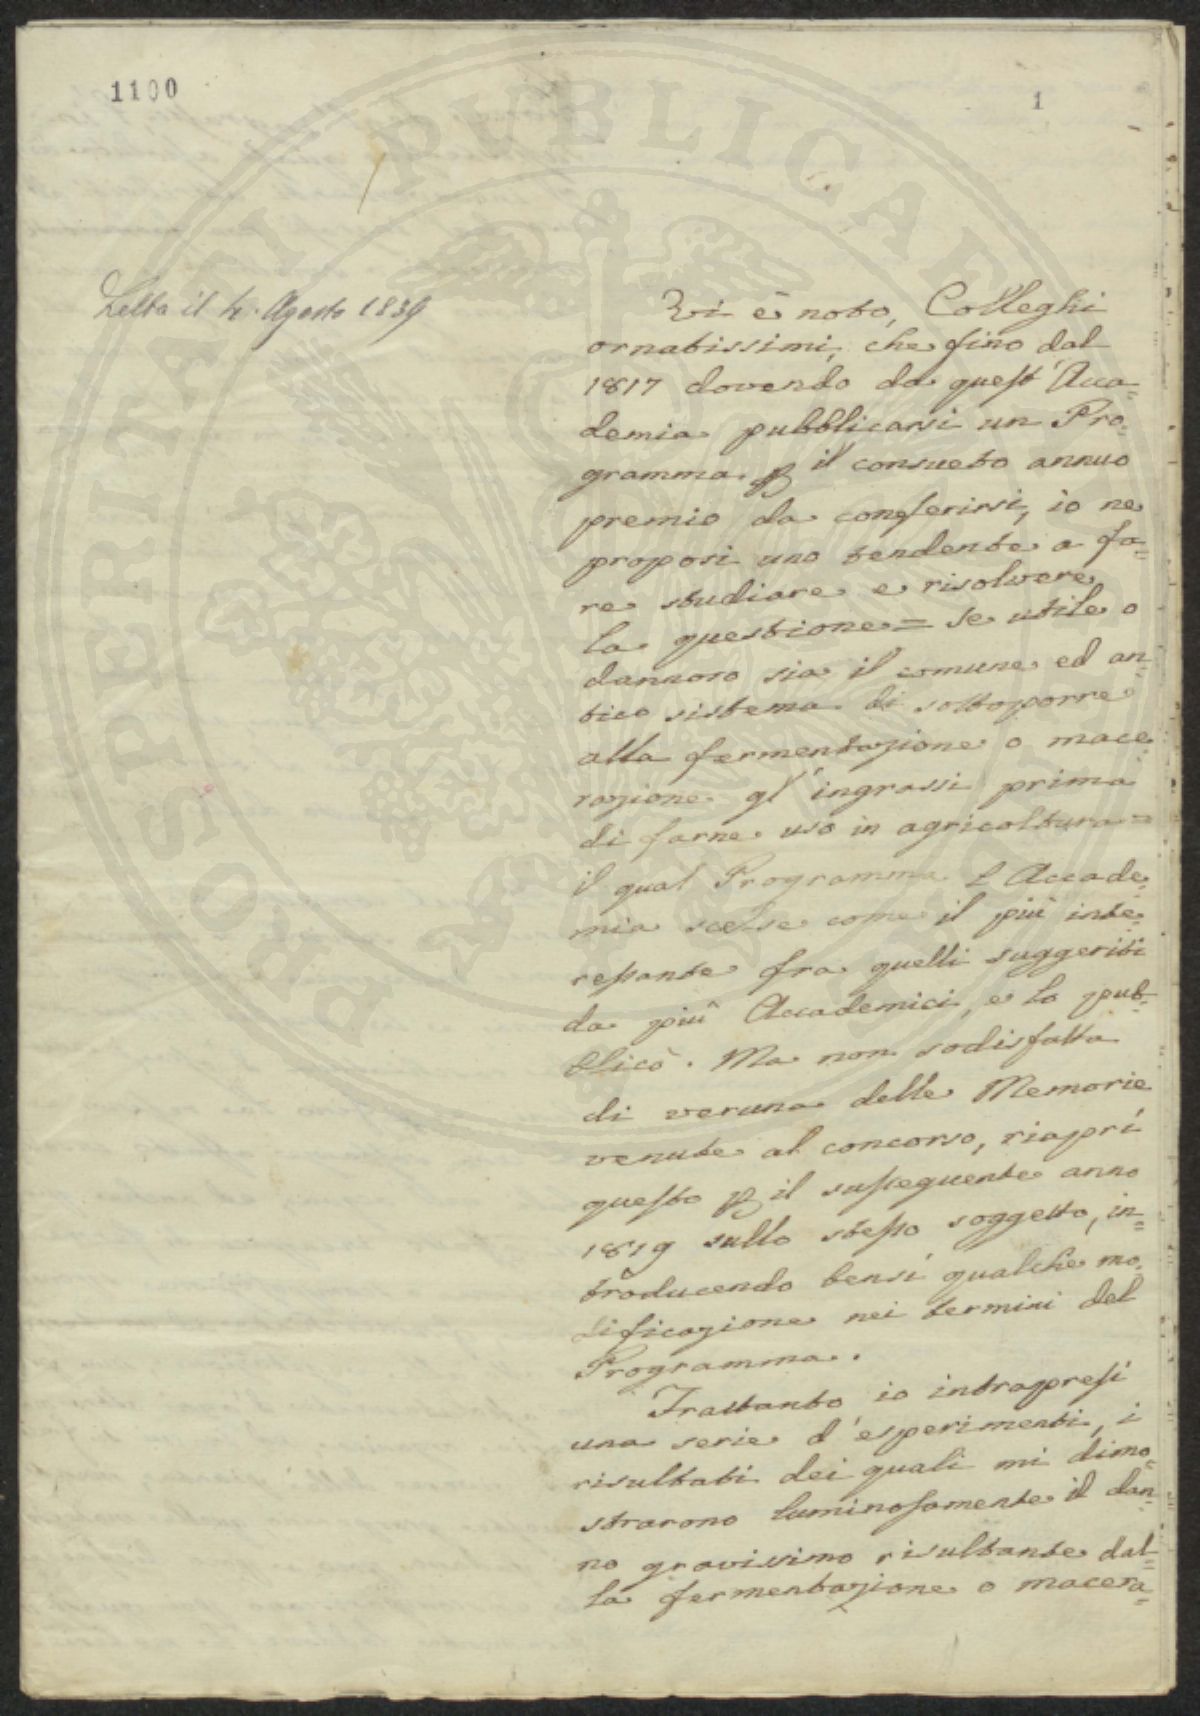 1100
1
PROSPERITATI PUBLICAE
Letta il 4. Agosto 1839
Vi è noto, Colleghi
ornatissimi, che fino dal
1817 dovendo da quest'Acca=
demia pubblicarsi un Pro=
gramma p il consueto annuo
premio da conferirsi, io ne
proposi uno tendente a fa=
re studiare e risolvere
la questione = se utile o
dannoso sia il comune ed an=
tico sistema di sottoporre
alla fermentazione o mace=
razione gl'ingrassi prima
di farne uso in agricoltura =
il qual Programma l'Accade=
mia scelse come il più inte=
ressante fra quelli suggeriti
da più Accademici, e lo pub=
blicò. Ma non sodisfatta
di veruna delle Memorie
venute al concorso, riaprì
questo p il susseguente anno
1819 sullo stesso soggetto, in=
troducendo bensì qualche mo=
dificazione nei termini del
Programma.
Frattanto io intrapresi
una serie d'esperimenti, i
risultati dei quali mi dimo=
strarono luminosamente il dan=
no gravissimo risultante dal=
la fermentazione o macera=